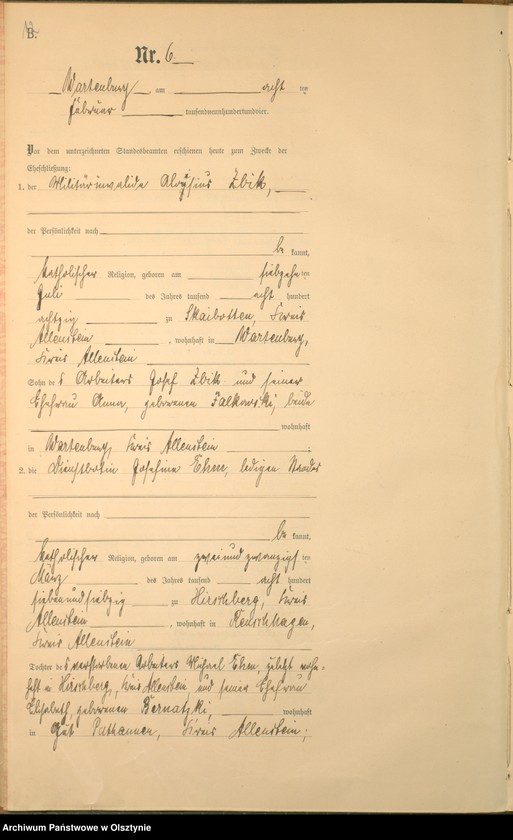 B.
Nr. 6
Wartenburg, am acht ten
Februar tausendneunhundertundvier.
Vor dem unterzeichneten Standesbeamten erschienen heute zum Zwecke der
Eheschließung:
1. der Militärinvalide Aloysius Zbik,
der Persönlichkeit nach
be kannt,
katholischer Religion, geboren am siebzehn ten
Juli des Jahres tausend acht hundert
achtzig zu Skaibotten, Kreis
Allenstein, wohnhaft in Wartenburg,
Kreis Allenstein
Sohn des Arbeiters Josef Zbik und seiner
Ehefrau Anna, geborenen Falkowski, beide
wohnhaft
in Wartenburg, Kreis Allenstein;
2. die Dienstbotin Josefine Ehm, ledigen Standes
der Persönlichkeit nach
be kannt,
katholischer Religion, geboren am zweiundzwanzigs ten
März des Jahres tausend acht hundert
siebenundsiebzig zu Hirschberg, Kreis
Allenstein, wohnhaft in Reuschhagen,
Kreis Allenstein
Tochter des verstorbenen Arbeiters Michael Ehm, zuletzt wohn-
haft in Hirschberg, Kreis Allenstein, und seiner Ehefrau
Elisabeth, geborenen Bernatzki, wohnhaft
in Gut Pathaunen, Kreis Allenstein;
Archiwum Państwowe w Olsztynie